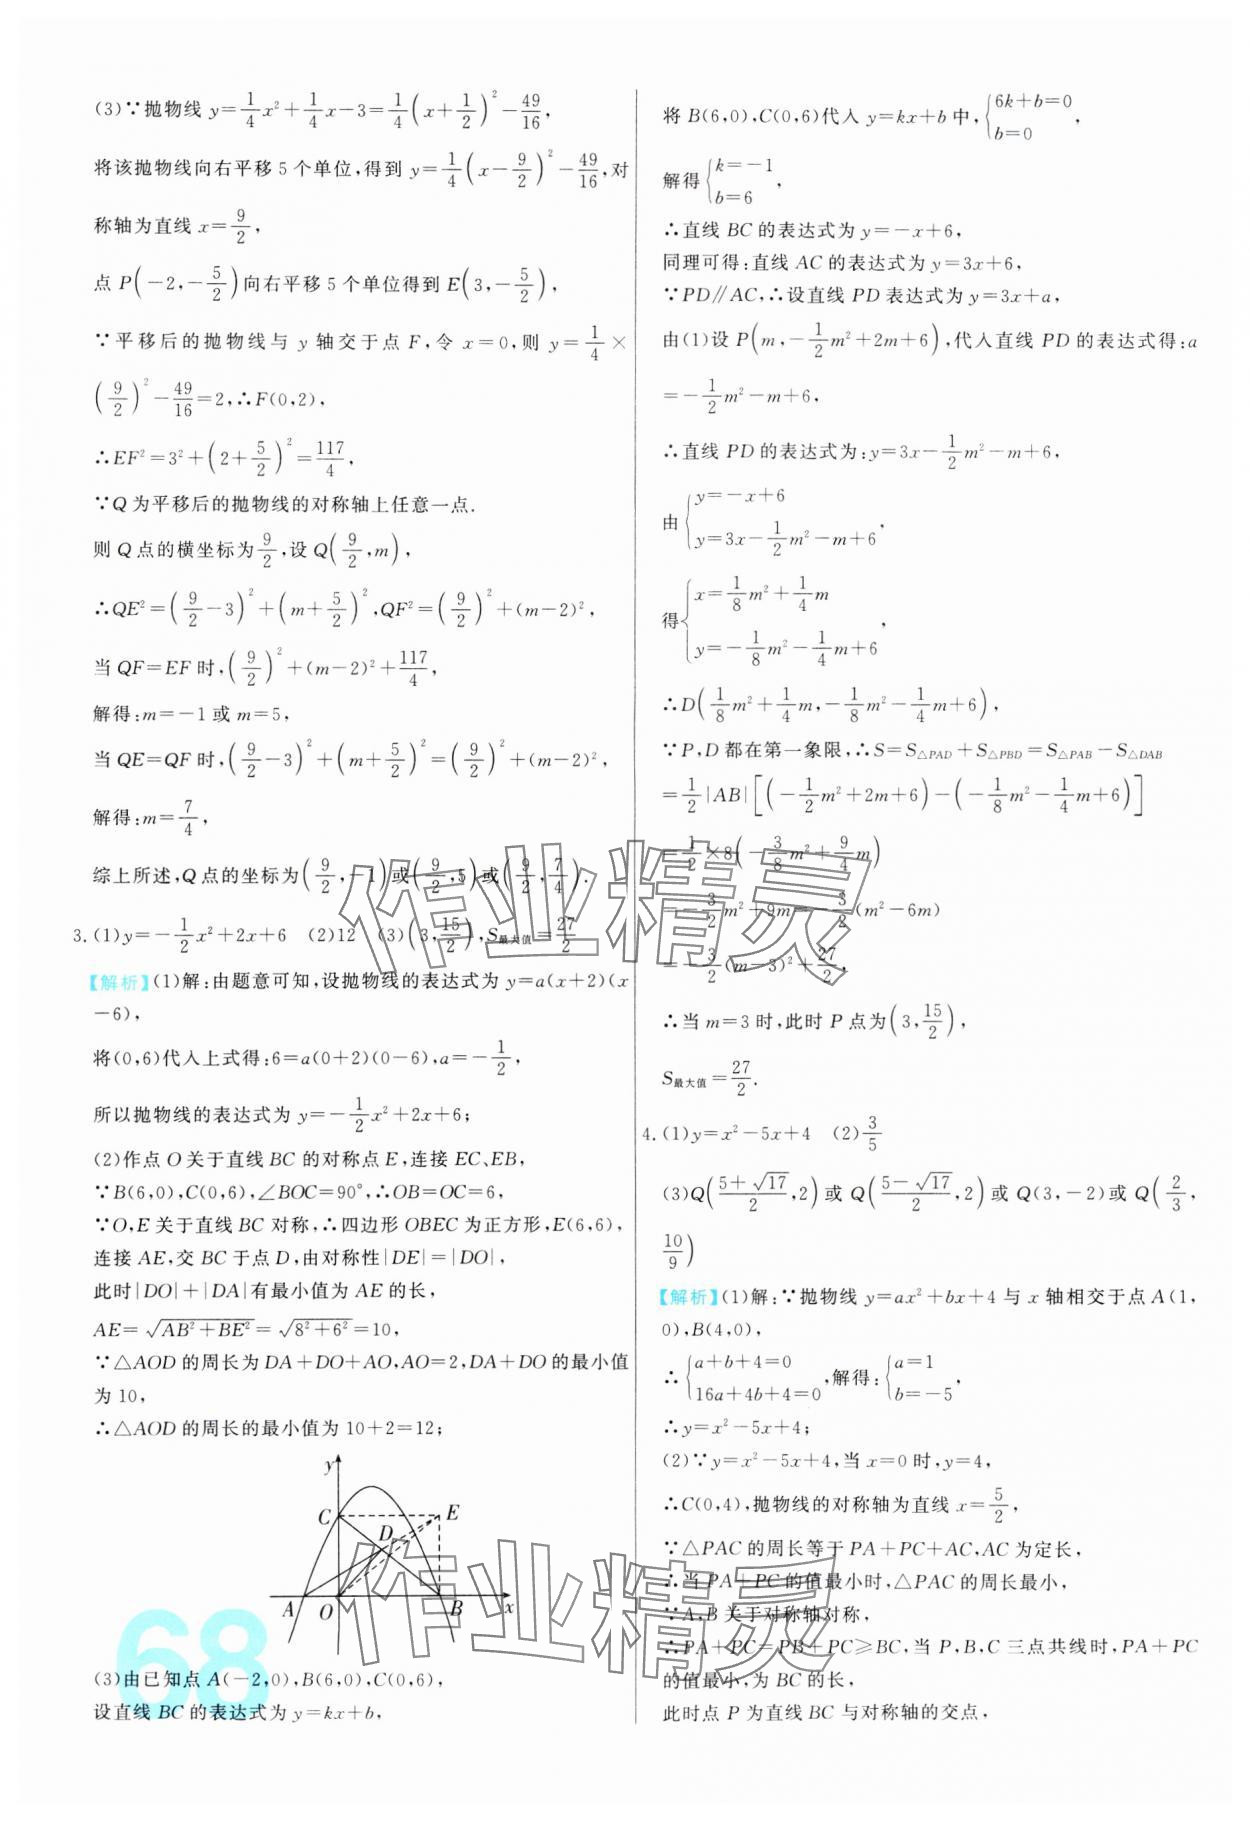 (3)∵抛物线 y=1/4x²+1/4x−3=1/4(x+1/2)²−49/16,
将该抛物线向右平移 5 个单位,得到 y=1/4(x−9/2)²−49/16,对
称轴为直线 x=9/2,
点 P(−2,−5/2)向右平移 5 个单位得到 E(3,−5/2),
∵平移后的抛物线与 y 轴交于点 F,令 x=0,则 y=1/4×
(9/2)²−49/16=2,∴F(0,2),
∴EF²=3²+(2+5/2)²=117/4,
∵Q 为平移后的抛物线的对称轴上任意一点.
则 Q 点的横坐标为9/2,设 Q(9/2,m),
∴QE²=(9/2−3)²+(m+5/2)²,QF²=(9/2)²+(m−2)²,
当 QF=EF 时,(9/2)²+(m−2)²+117/4,
解得:m=−1 或 m=5,
当 QE=QF 时,(9/2−3)²+(m+5/2)²=(9/2)²+(m−2)²,
解得:m=7/4,
综上所述,Q 点的坐标为(9/2,−1)或(9/2,5)或(9/2,7/4).
3. (1)y=−1/2x²+2x+6 (2)12 (3)(3,15/2),S最大值=27/2
【解析】(1)解:由题意可知,设抛物线的表达式为 y=a(x+2)(x
−6),
将(0,6)代入上式得:6=a(0+2)(0−6),a=−1/2,
所以抛物线的表达式为 y=−1/2x²+2x+6;
(2)作点 O 关于直线 BC 的对称点 E,连接 EC、EB,
∵B(6,0),C(0,6),∠BOC=90°,∴OB=OC=6,
∵O,E 关于直线 BC 对称,∴四边形 OBEC 为正方形,E(6,6),
连接 AE,交 BC 于点 D,由对称性|DE|=|DO|,
此时|DO|+|DA|有最小值为 AE 的长,
AE=√(AB²+BE²)=√(8²+6²)=10,
∵△AOD 的周长为 DA+DO+AO,AO=2,DA+DO 的最小值
为 10,
∴△AOD 的周长的最小值为 10+2=12;
y
C
E
D
A
O
B
x
(3)由已知点 A(−2,0),B(6,0),C(0,6),
设直线 BC 的表达式为 y=kx+b,
68
将 B(6,0),C(0,6)代入 y=kx+b 中,{6k+b=0
b=0,
解得{k=−1
b=6,
∴直线 BC 的表达式为 y=−x+6,
同理可得:直线 AC 的表达式为 y=3x+6,
∵PD∥AC,∴设直线 PD 表达式为 y=3x+a,
由(1)设 P(m,−1/2m²+2m+6),代入直线 PD 的表达式得:a
=−1/2m²−m+6,
∴直线 PD 的表达式为:y=3x−1/2m²−m+6,
由{y=−x+6
y=3x−1/2m²−m+6,
得{x=1/8m²+1/4m
y=−1/8m²−1/4m+6,
∴D(1/8m²+1/4m,−1/8m²−1/4m+6),
∵P,D 都在第一象限,∴S=S△PAD+S△PBD=S△PAB−S△DAB
=1/2|AB|[(−1/2m²+2m+6)−(−1/8m²−1/4m+6)]
=1/2×8(−3/8m²+9/4m)
=−3/2m²+9m=−3/2(m²−6m)
=−3/2(m−3)²+27/2,
∴当 m=3 时,此时 P 点为(3,15/2),
S最大值=27/2.
4. (1)y=x²−5x+4 (2)3/5
(3)Q((5+√17)/2,2)或 Q((5−√17)/2,2)或 Q(3,−2)或 Q(2/3,
10/9)
【解析】(1)解:∵抛物线 y=ax²+bx+4 与 x 轴相交于点 A(1,
0),B(4,0),
∴{a+b+4=0
16a+4b+4=0,解得:{a=1
b=−5,
∴y=x²−5x+4;
(2)∵y=x²−5x+4,当 x=0 时,y=4,
∴C(0,4),抛物线的对称轴为直线 x=5/2,
∵△PAC 的周长等于 PA+PC+AC,AC 为定长,
∴当 PA+PC 的值最小时,△PAC 的周长最小,
∵A,B 关于对称轴对称,
∴PA+PC=PB+PC≥BC,当 P,B,C 三点共线时,PA+PC
的值最小,为 BC 的长,
此时点 P 为直线 BC 与对称轴的交点,
作业精灵
作业精灵